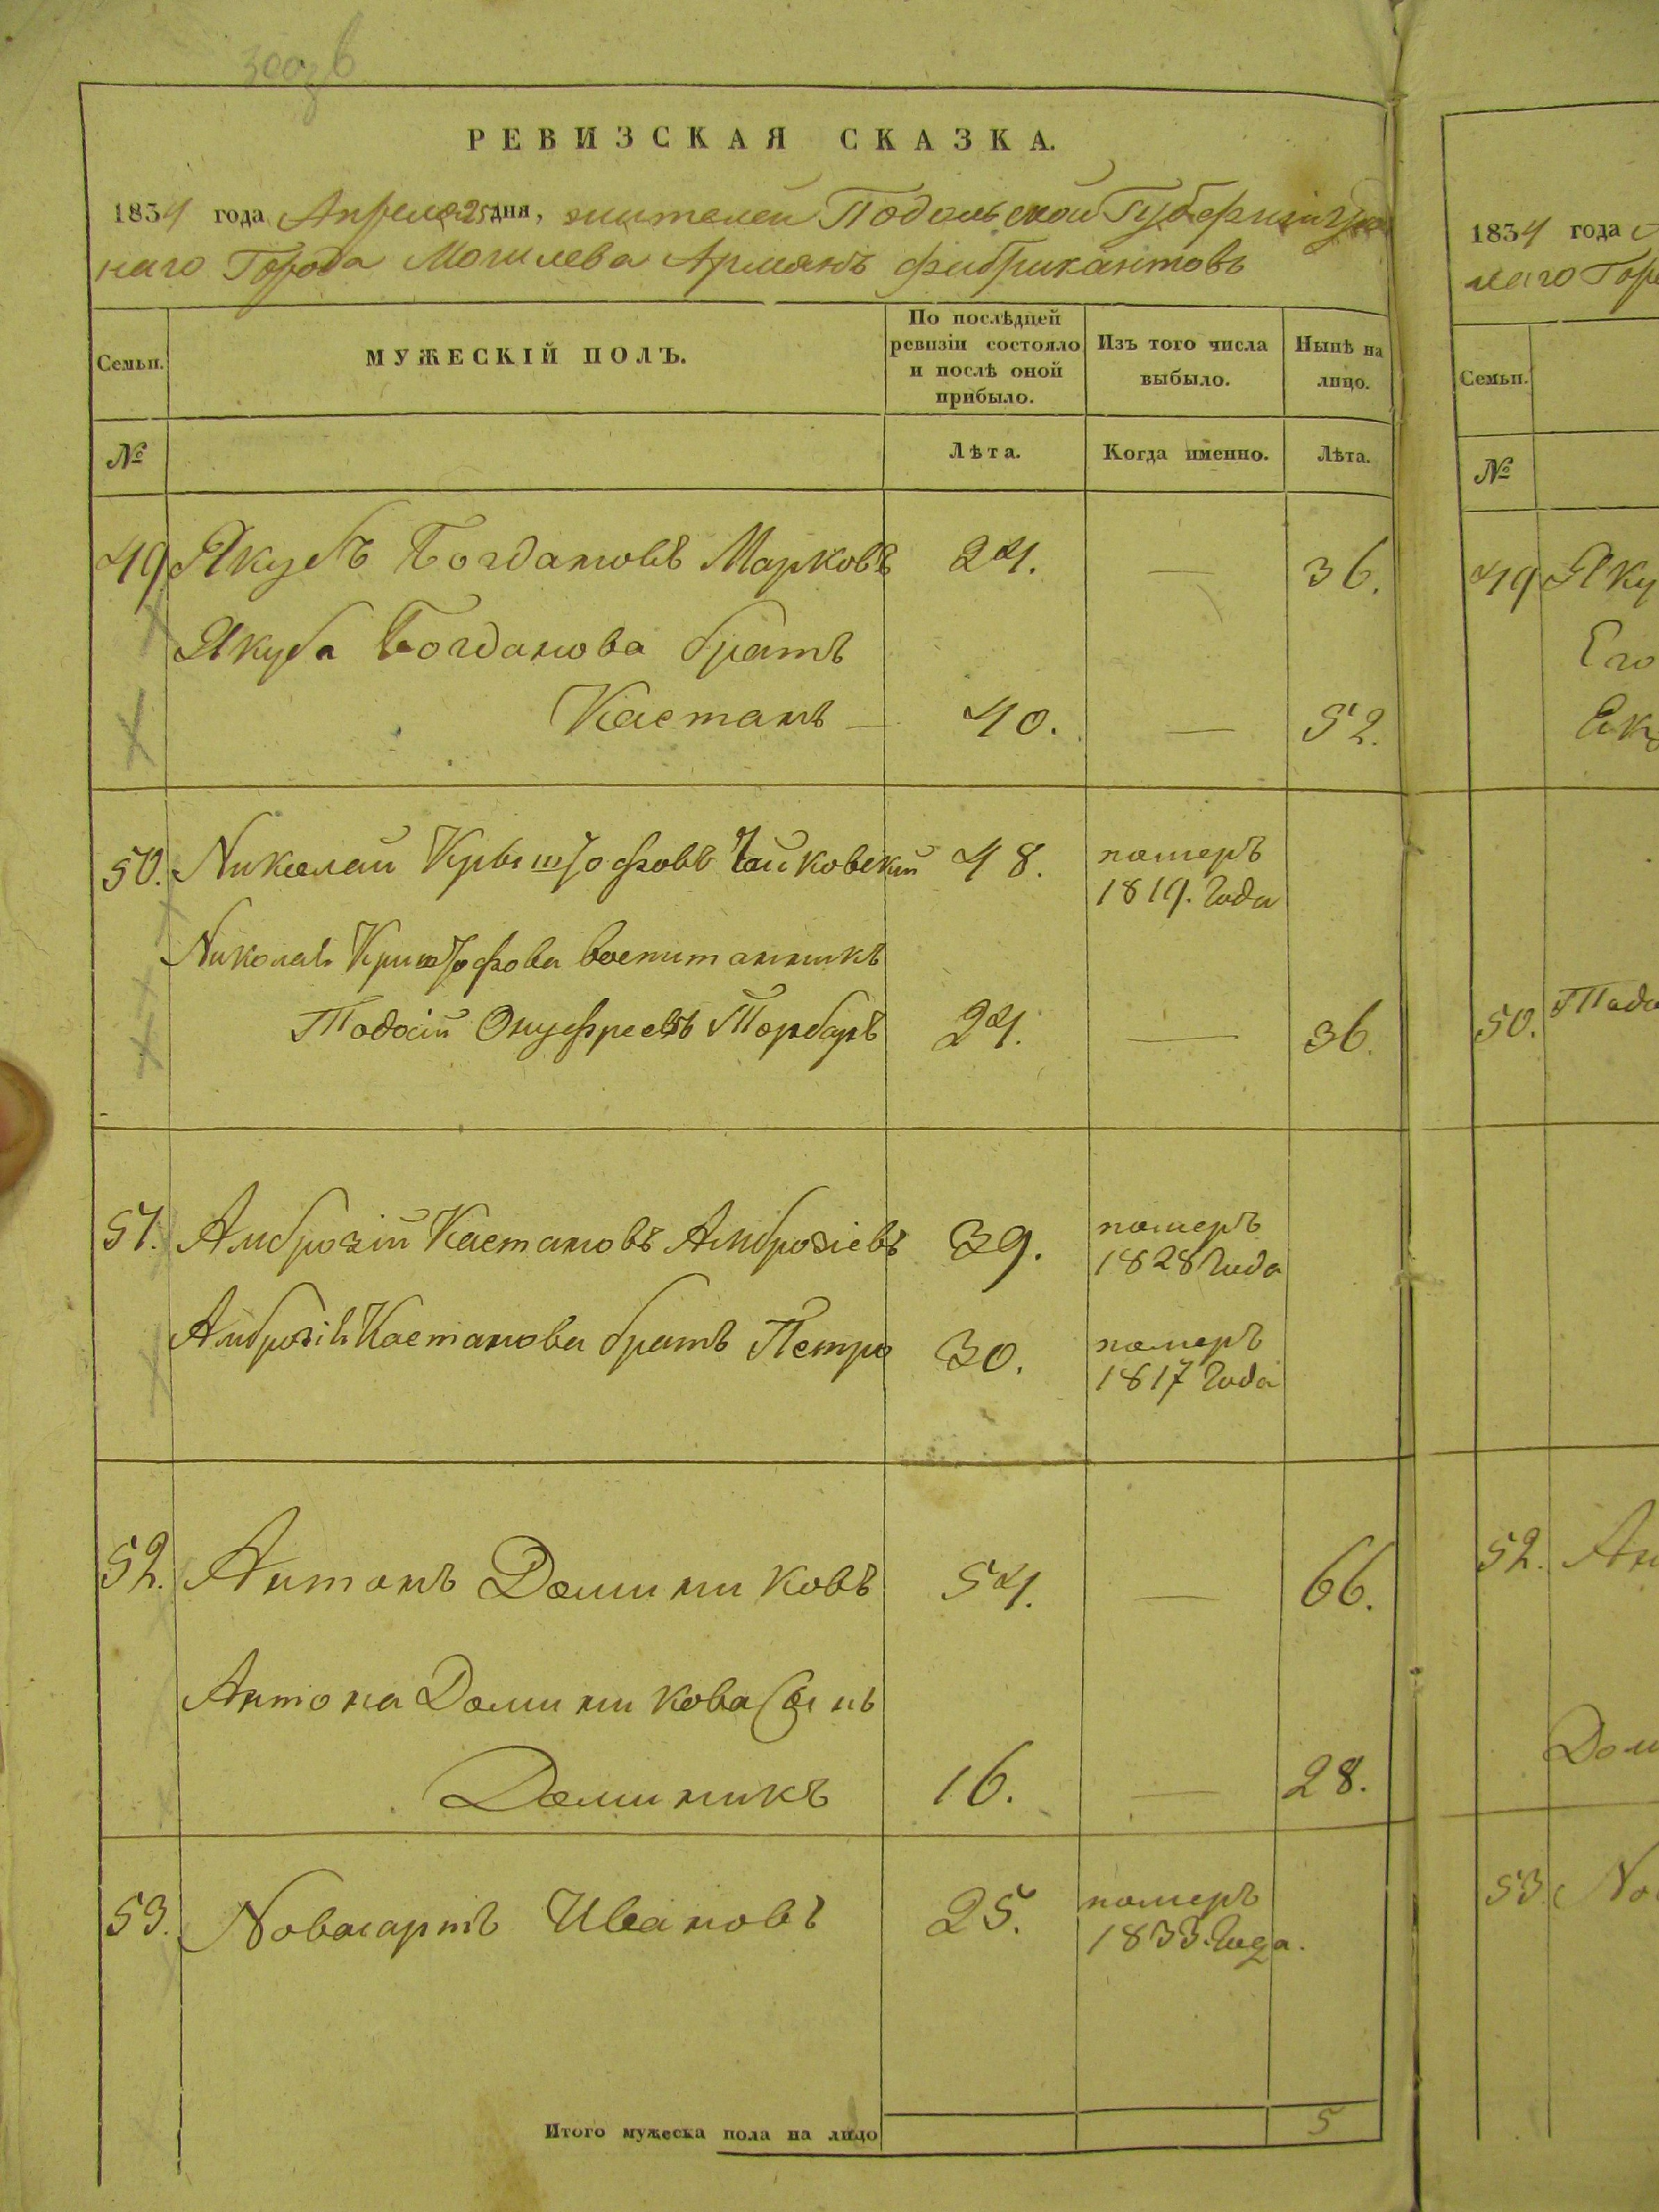 РЕВИЗСКАЯ СКАЗКА.
1834 года Апреля 25 дня, жителей Подольской Губерніи
наго Города Могилева Армянъ фабрикантовъ
Семьи.
МУЖЕСКІЙ ПОЛЪ.
По послѣдней
ревизіи состояло
и послѣ оной
прибыло.
Изъ того числа
выбыло.
Нынѣ на
лицо.
№
Лѣта.
Когда именно.
Лѣта.
49 Якубъ Богдановъ Марковъ 24. — 36.
Якуба Богданова братъ
Кастанъ — 40. — 52.
50. Николай Крыштофовъ Чайковскій 48. померъ
1819. Года
Николая Криштофова воспитанникъ
Тодосій Онуфреевъ Торбаръ 24. — 36.
51. Амброзій Кастановъ Амброзіевъ 39. померъ
1828 Года
Амброзія Кастанова братъ Петро 30. померъ
1817 Года
52. Антонъ Доминиковъ 54. — 66.
Антона Доминикова Сынъ
Доминикъ 16. — 28.
53. Новосартъ Ивановъ 25. померъ
1833. Года.
Итого мужеска пола на лицо 5
1834 года
наго
Семьи.
№
49 Яку
Его
50.
52. Ан
Дом
53. Но